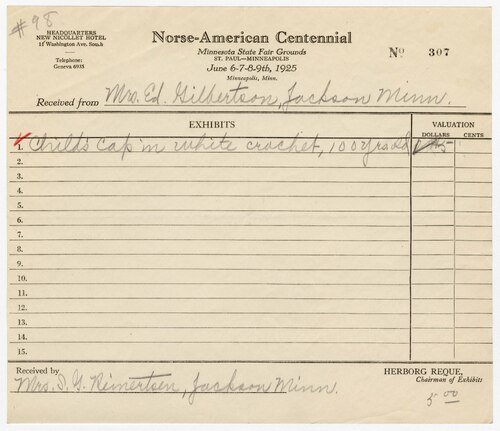 #98
HEADQUARTERS
NEW NICOLLET HOTEL
11 Washington Ave. South
Telephone:
Geneva 6935
Norse-American Centennial
Minnesota State Fair Grounds
ST. PAUL—MINNEAPOLIS
June 6-7-8-9th, 1925
Minneapolis, Minn.
No 307
Received from Mrs. Ed. Gilbertson, Jackson Minn.
EXHIBITS
VALUATION
DOLLARS CENTS
1. Child's Cap in white crochet, 100 yrs old
2.
3.
4.
5.
6.
7.
8.
9.
10.
11.
12.
13.
14.
15.
Received by
Mrs. I. G. Reinertsen, Jackson Minn.
HERBORG REQUE,
Chairman of Exhibits
5 00